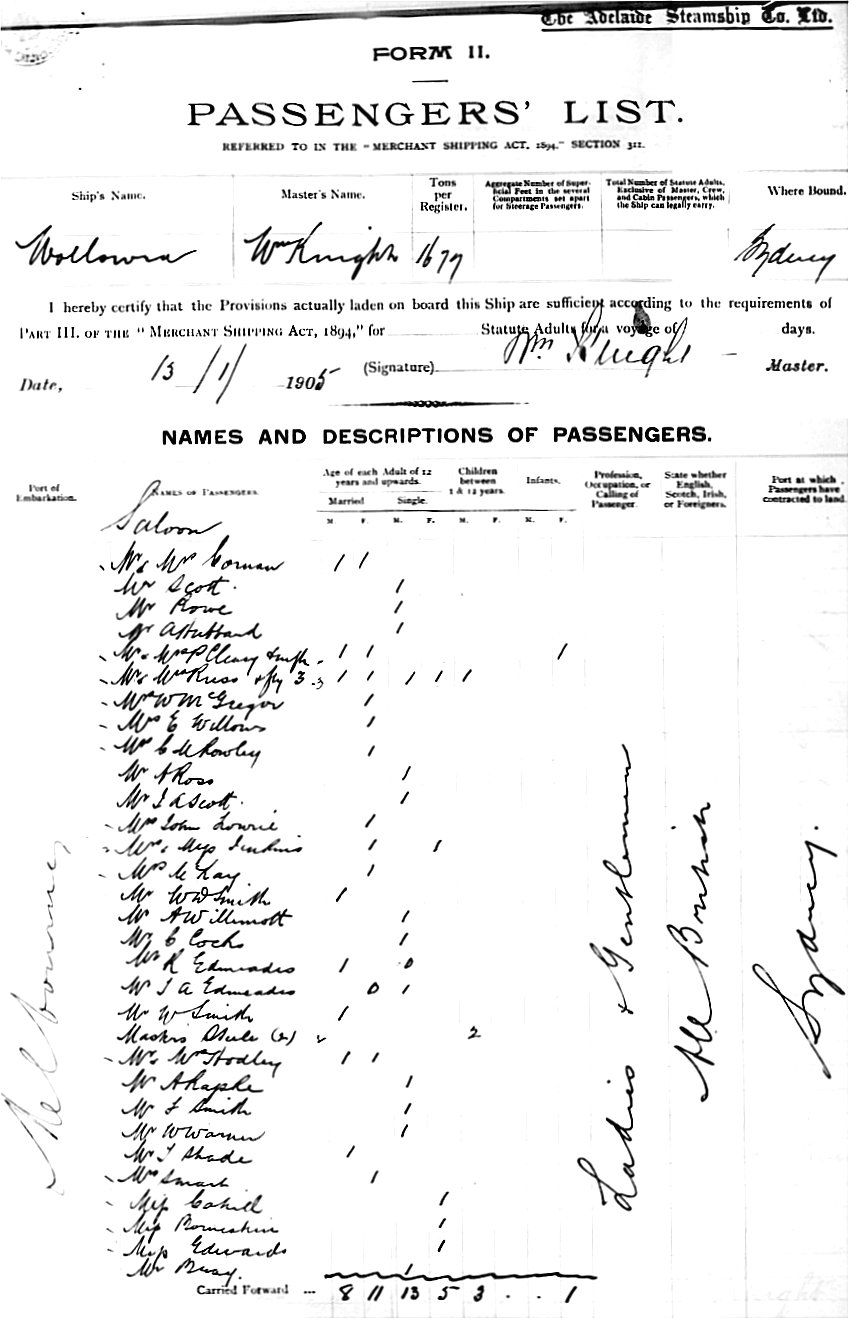 The Adelaide Steamship Co. Ltd.
FORM II.
PASSENGERS' LIST.
REFERRED TO IN THE "MERCHANT SHIPPING ACT, 1894," SECTION 311.
Ship's Name. Master's Name. Tons per Register. Aggregate Number of Superficial Feet in the several Compartments set apart for Steerage Passengers. Total Number of Statute Adults, Exclusive of Master, Crew, and Cabin Passengers, which the Ship can legally carry. Where Bound.
Wollowra Wm Knight 1677 Sydney
I hereby certify that the Provisions actually laden on board this Ship are sufficient according to the requirements of
PART III. OF THE "MERCHANT SHIPPING ACT, 1894," for Statute Adults for a voyage of days.
Date, 13/1/1905 (Signature) Wm Knight Master.
NAMES AND DESCRIPTIONS OF PASSENGERS.
Port of Embarkation. NAMES OF PASSENGERS. Age of each Adult of 12 years and upwards. Children between 1 & 12 years. Infants. Profession, Occupation, or Calling of Passenger. State whether English, Scotch, Irish, or Foreigners. Port at which Passengers have contracted to land.
Married Single.
M. F. M. F. M. F. M. F.
Saloon
Mr & Mrs 1 1
Mr Scott. 1
Mr Rowe 1
Mr A Hubbard 1
Mr & Mrs P Cleary & inft 1 1 1
Mr & Mrs Russ & fy 3 3 1 1 1 1 1
Mrs W McGregor 1
Mrs E Willows 1
Mrs C M Rowley 1
Mr A Ross 1
Mr J A Scott. 1
Mrs John Lowrie 1
Mrs & Miss Jenkins 1 1
Mrs McKay 1
Mr W D Smith 1
Mr A Willimott 1
Mr C Cocks 1
Mr R Edmeades 1 0
Mr J A Edmeades 0 1
Mr W Smith 1
Masters Steele (2) 2 2
Mr & Mrs Hodley 1 1
Mr A Rapke 1
Mr F Smith 1
Mr W Warner 1
Mr T Shade 1
Mrs Smart 1
Miss Cahill 1
Miss 1
Miss Edwards 1
Mr 1
Carried Forward ... 8 11 13 5 3 . . 1
Melbourne
Ladies & Gentlemen
All British
Sydney.